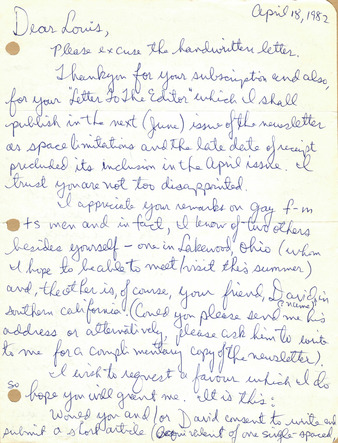 April 18, 1982
Dear Louis,
Please excuse the handwritten letter.
Thankyou for your subscription and also,
for your "Letter To The Editor" which I shall
publish in the next (June) issue of the newsletter
as space limitations and the late date of receipt
precluded its inclusion in the April issue. I
trust you are not too disappointed.
I appreciate your remarks on gay f-m
TS men and in fact, I know of two others
besides yourself - one in Lakewood, Ohio (whom
I hope to be able to meet/visit this summer)
and, the other is, of course, your friend, David in
southern california. (Could you please send me his
name/
address or alternatively, please ask him to write
to me for a complimentary copy of the newsletter).
I wish to request a favour which I do
so hope you will grant me. It is this:
Would you and/or David consent to write and
submit a short article (equivalent of one single-spaced,